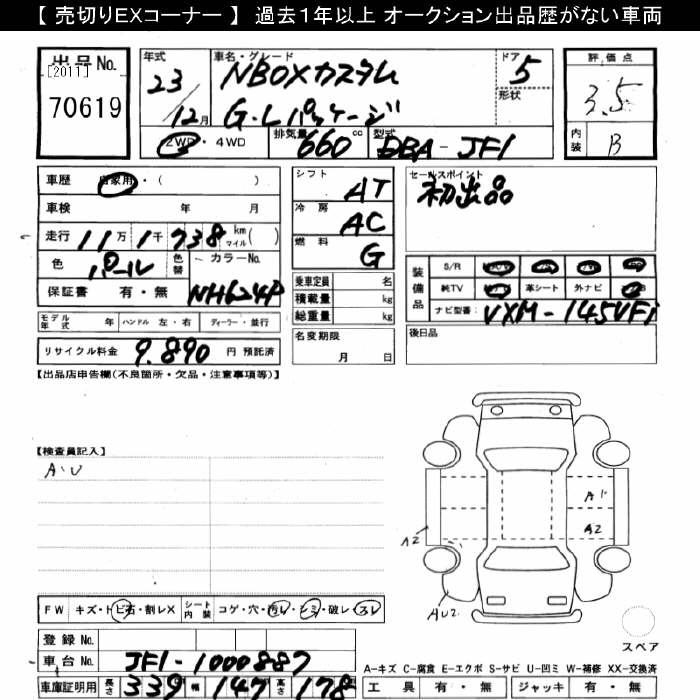 【 売切りEXコーナー 】 過去1年以上 オークション出品歴がない車両
出品 No.
[2011]
70619
年式
23
12月
車名・グレード
NBOXカスタム
G・Lパッケージ
ドア
5
形状
評価点
3.5
内装
B
2WD・4WD
排気量
660 cc
型式
DBA-JF1
車歴 自家用・( )
車検 年 月
走行 11万 1千 738 km マイル( )
色 パール 色替 カラーNo.
保証書 有・無 NH624P
モデル年式 年 ハンドル 左・右 ディーラー・並行
リサイクル料金 9.890 円 預託済
シフト AT
冷房 AC
燃料 G
乗車定員 名
積載量 kg
総重量 kg
名変期限
月 日
セールスポイント
初出品
装備品
S/R
純TV 革シート 外ナビ
ナビ型番: VXM-145VFi
後日品
【出品店申告欄(不良個所・欠品・注意事項等)】
【検査員記入】
A・U
A1
A2
A2
AU2
FW キズ・トビ石・割レX シート内装 コゲ・穴・汚レ・シミ・破レ・スレ
登録 No.
車台 No. JF1-1000887
車庫証明用 長さ 339 幅 147 高さ 178
スペア
A-キズ C-腐食 E-エクボ S-サビ U-凹ミ W-補修 XX-交換済
工具 有・無 ジャッキ 有・無